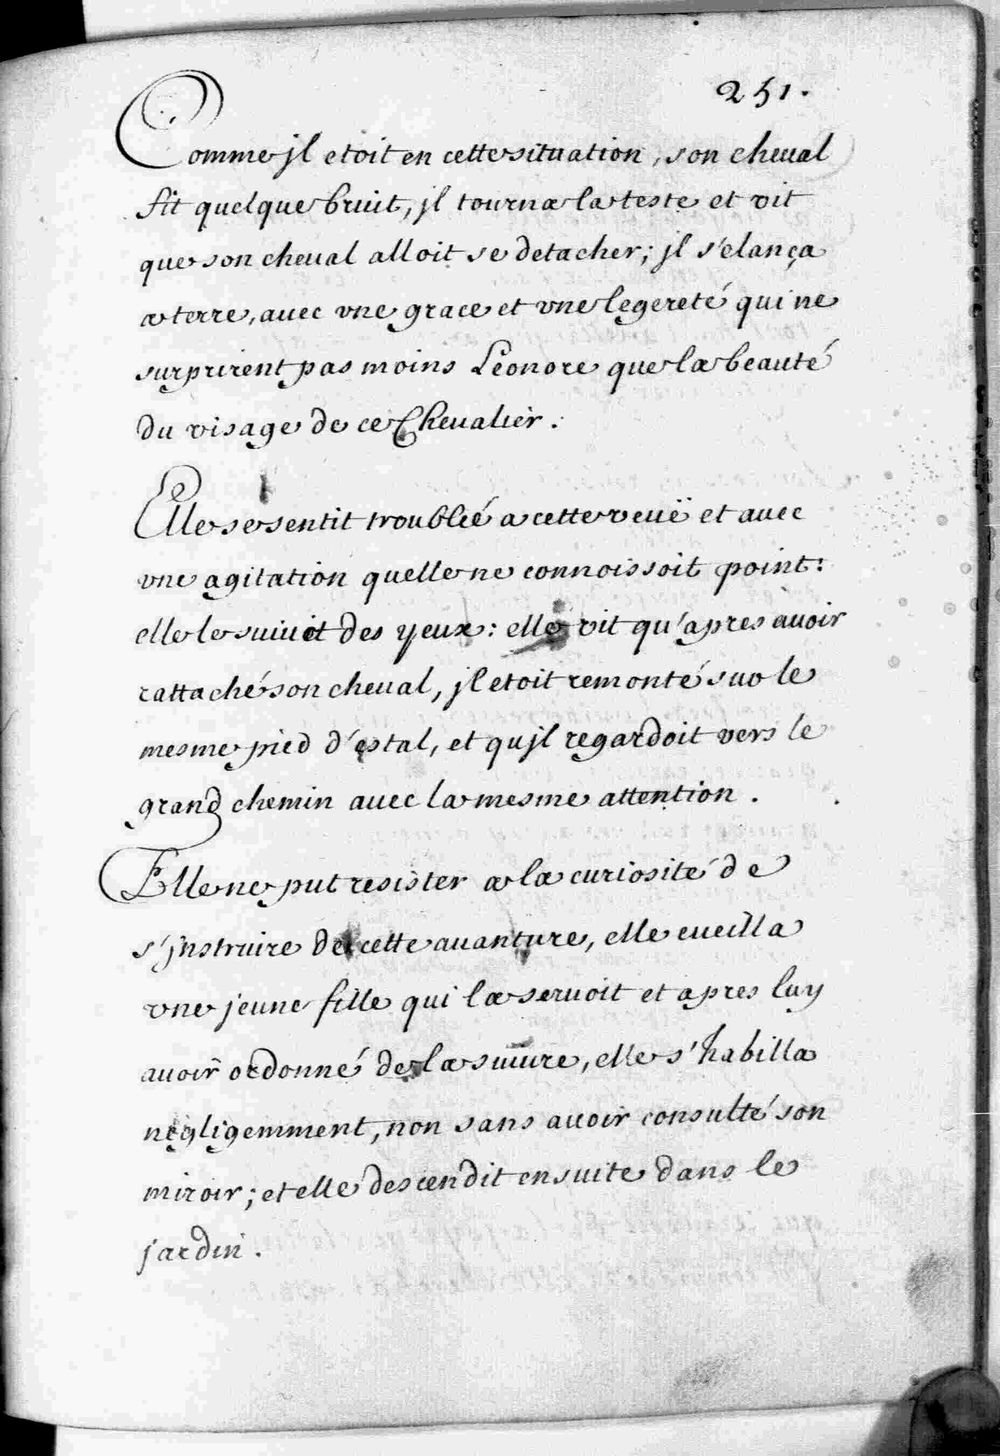 251.
Comme jl etoit en cette situation, son cheual
fit quelque bruit, jl tourna la teste et vit
que son cheual alloit se detacher; jl s'elança
a terre, auec vne grace et vne legereté qui ne
surprirent pas moins Léonore que la beauté
du visage de ce Cheualier.
Elle se sentit troubleé a cette veuë et auec
vne agitation quelle ne connoissoit point:
elle le suiuit des yeux: elle vit qu'apres auoir
rattaché son cheual, jl etoit remonté sur le
mesme pied d'estal, et qujl regardoit vers le
grand chemin auec la mesme attention.
Elle ne put resister a la curiosité de
s'jnstruire de cette auanture, elle eueilla
vne jeune fille qui la seruoit et apres luy
auoir ordonné de la suiure, elle s'habilla
negligemment, non sans auoir consulté son
miroir; et elle descendit ensuite dans le
jardin.